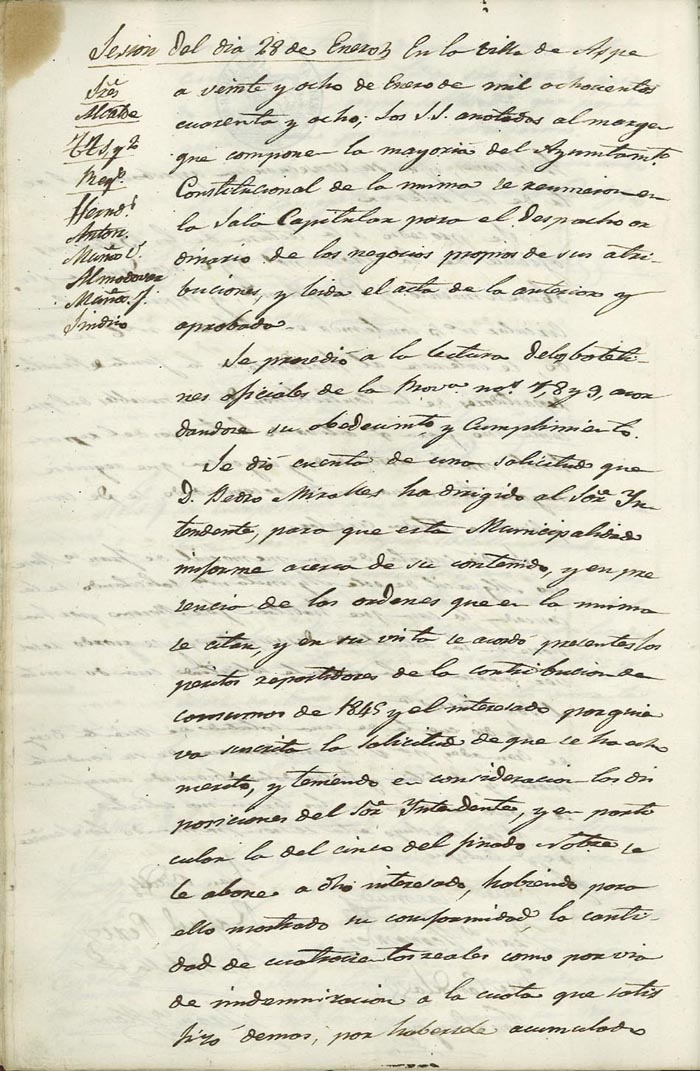 Sesion del dia 28 de Enero, En la Villa de Aspe
Sres
Alcalde
Regs
Hernz
Anton.
Muñoz V.
Almodovar
Muñoz J.
Sindico
a veinte y ocho de Enero de mil ochocientos
cuarenta y ocho; Los S.S. anotados al margen
que componen la mayoria del Ayuntamto
Constitucional de la misma se reunieron en
la Sala Capitular para el despacho or
dinario de los negocios propios de sus atri-
buciones, y leida el acta de la anterior y
aprobada.
Se procedió a la lectura delos boleti-
nes oficiales de la Prova nos 7, 8 y 9, acor
dandose su obedecimto y Cumplimiento.
Se dió cuenta de una solicitud que
D. Pedro Miralles ha dirigido al Sor Yn-
tendente, para que esta Municipalidad
informe acerca de su contenido, y en pre
sencia de las ordenes que en la misma
se citan, y en su vista se acordó presentes los
peritos repartidores de la contribucion de
consumos de 1845 y el interesado por quien
va suscrita la solicitud de que se ha echo
merito, y teniendo en consideracion las dis
posiciones del Sor Yntendente, y en parti
cular la del cinco del pasado Nobre se
le abone a dho interesado, habiendo para
ello mostrado su conformidad, la canti-
dad de cuatrocientos reales como por via
de indemnizacion a la cuota que satis
fizo demas, por habersele acumulado